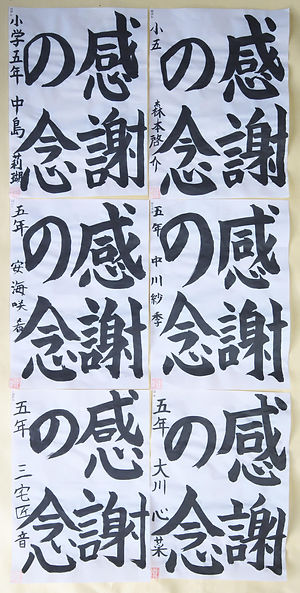 感謝
の念
小五 森本啓介
感謝
の念
小学五年 中島莉瑚
感謝
の念
五年 中川紗季
感謝
の念
五年 安海咲希
感謝
の念
五年 大川心菜
感謝
の念
五年 三宅匠音